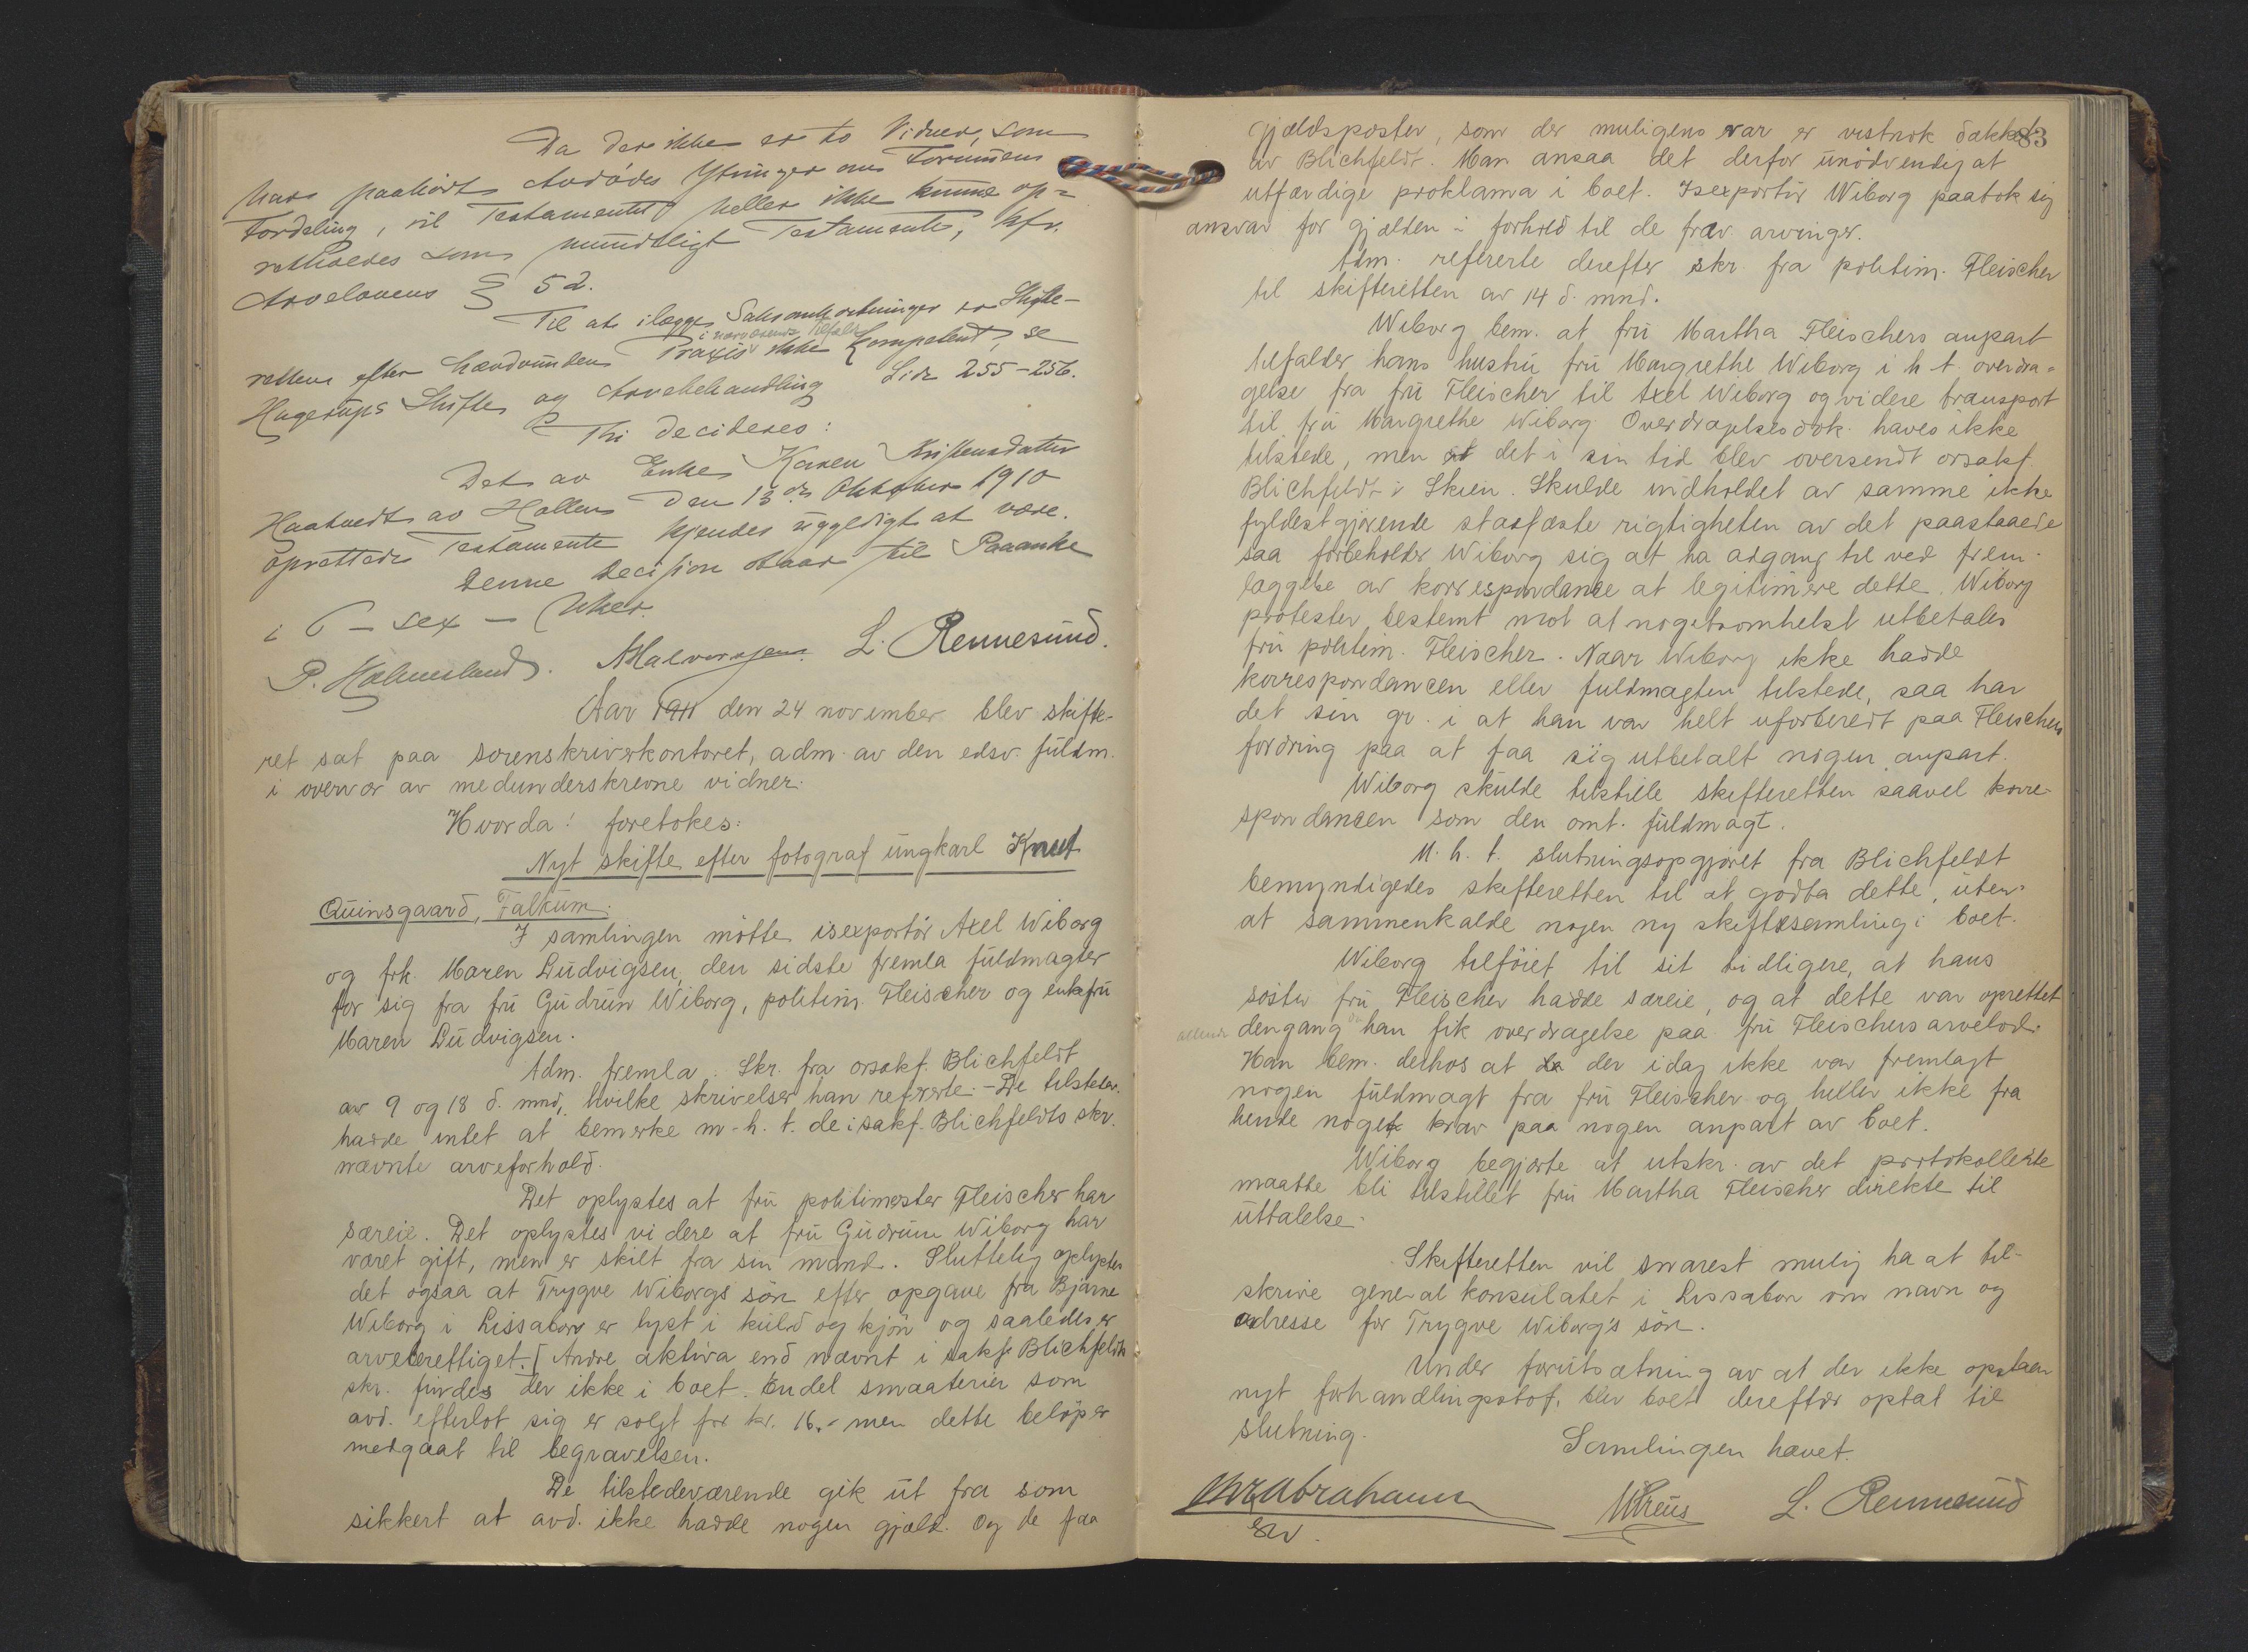 Da der ikke er to Vidner, som
har paahört Avdödes Ytringer om Formuens
Fordeling, vil Testamentet heller ikke kunne op=
retholdes som mundtligt Testamente, kfr.
Arvelovens § 52.
Til at ilægge Saksomkostninger er Skifte-
i nærværende Tilfælde
retten efter hævdvunden Praxis ikke kompetent, se
Hagerups Skifte og Arvebehandling Side 255-256.
Thi decideres:
Det av Enke Karen Kristensdatter
Haatvedt av Hollen den 13de Oktober 1910
oprettede Testamente kjendes ugyldigt at være.
Denne Decision staar til Paaanke
i 6 - sex - Uker.
P. Holmesland. Halvorsen. L. Rennesund.
Aar 1911 den 24 november blev skifte-
ret sat paa sorenskriverkontoret, adm. av den edsv. fuldm.
i overvær av medunderskrevne vidner.
Hvorda! foretokes:
Nyt skifte efter fotograf ungkarl Knut
Quinsgaard, Falkum.
I samlingen mötte isexportör Axel Wiborg
og frk. Maren Ludvigsen, den sidste fremla fuldmagter
for sig fra fru Gudrun Wiborg, politim. Fleischer og enkefru
Maren Ludvigsen.
Adm. fremla. Skr. fra orsakf. Blichfeldt
av 9 og 18 d. mnd, hvilke skrivelser han refererte. - De tilstedev.
hadde intet at bemerke m-h. t. de i sakf. Blichfeldts skr.
nævnte arveforhold.
Det oplystes at fru politimester Fleischer har
særeie. Det oplystes videre at fru Gudrun Wiborg har
været gift, men er skilt fra sin mand. Sluttelig oplystes
det ogsaa at Trygve Wiborgs sön efter opgave fra Bjarne
Wiborg i Lissabon er lyst i kuld og kjön og saaledes er
arveberettiget. [Andre aktiva end nævnt i sakf. Blichfeldts
skr. findes der ikke i boet. Endel smaaterier som
avd. efterlot sig er solgt for kr. 16.- men dette belöp er
medgaat til begravelsen.
De tilstedeværende gik ut fra som
sikkert at avd. ikke hadde nogen gjæld. Og de faa
83
gjældsposter, som der muligens var er vistnok dækket
av Blichfeldt. Man ansaa det derfor unödvendig at
utfærdige proklama i boet. Isexportör Wiborg paatok sig
ansvar for gjælden i forhold til de frav. arvinger.
Adm. refererte derefter skr. fra politim. Fleischer
til skifteretten av 14 d. mnd.
Wiborg bem. at fru Martha Fleischers anpart
tilfalder hans hustru fru Margrethe Wiborg i h t. overdra=
gelse fra fru Fleischer til Axel Wiborg og videre transport
til fru Margrethe Wiborg. Overdragelsesdok. haves ikke
tilstede, men det i sin tid blev oversendt orsakf.
Blichfeldt i Skien. Skulde indholdet av samme ikke
fyldestgjörende stadfæste rigtigheten av det paastaaede
saa forbeholder Wiborg sig at ha adgang til ved frem-
læggelse av korrespondance at legitimere dette. Wiborg
protester bestemt mot at nogetsomhelst utbetales
fru politim. Fleischer. Naar Wiborg ikke hadde
korrespondancen eller fuldmagten tilstede, saa har
det sin gr. i at han var helt uforberedt paa Fleischers
fordring paa at faa sig utbetalt nogen anpart.
Wiborg skulde tilstille skifteretten saavel korre-
spondancen som den omt. fuldmagt.
M. h. t. slutningsopgjöret fra Blichfeldt
bemyndigedes skifteretten til at godta dette, uten
at sammenkalde nogen ny skiftesamling i boet.
Wiborg tilföiet til sit tidligere, at hans
söster fru Fleischer hadde særeie, og at dette var oprettet
allerede dengang da han fik overdragelse paa fru Fleischers arvelod.
Han bem. derhos at der idag ikke var fremlagt
nogen fuldmagt fra fru Fleischer og heller ikke fra
hende noget krav paa nogen anpart av boet.
Wiborg begjærte at utskr. av det protokollerte
maatte bli tilstillet fru Martha Fleischer direkte til
uttalelse.
Skifteretten vil snarest mulig ha at til-
skrive generalkonsulatet i Lissabon om navn og
adresse for Trygve Wiborg's sön.
Under forutsætning av at der ikke opstaar
nyt forhandlingsstof, blev boet derefter optat til
slutning.
Samlingen hævet.
Chr Abrahams L. Rennesund